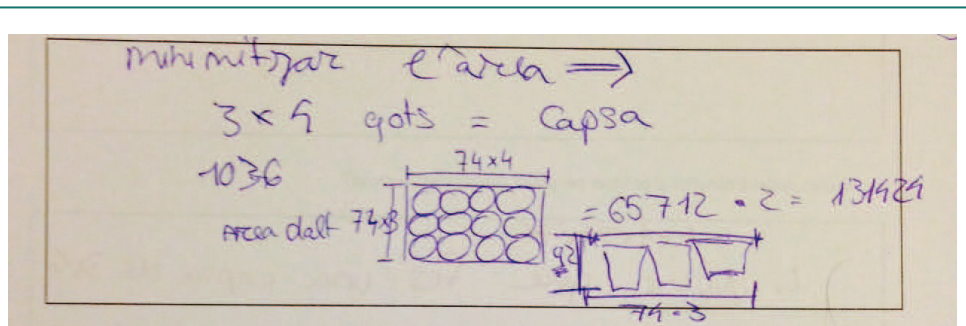 minimitzar l'àrea ⇒
3 x 4 gots = Capsa
1036
74x4
Area dalt 74x3 = 65712 · 2 = 131424
92
74·3